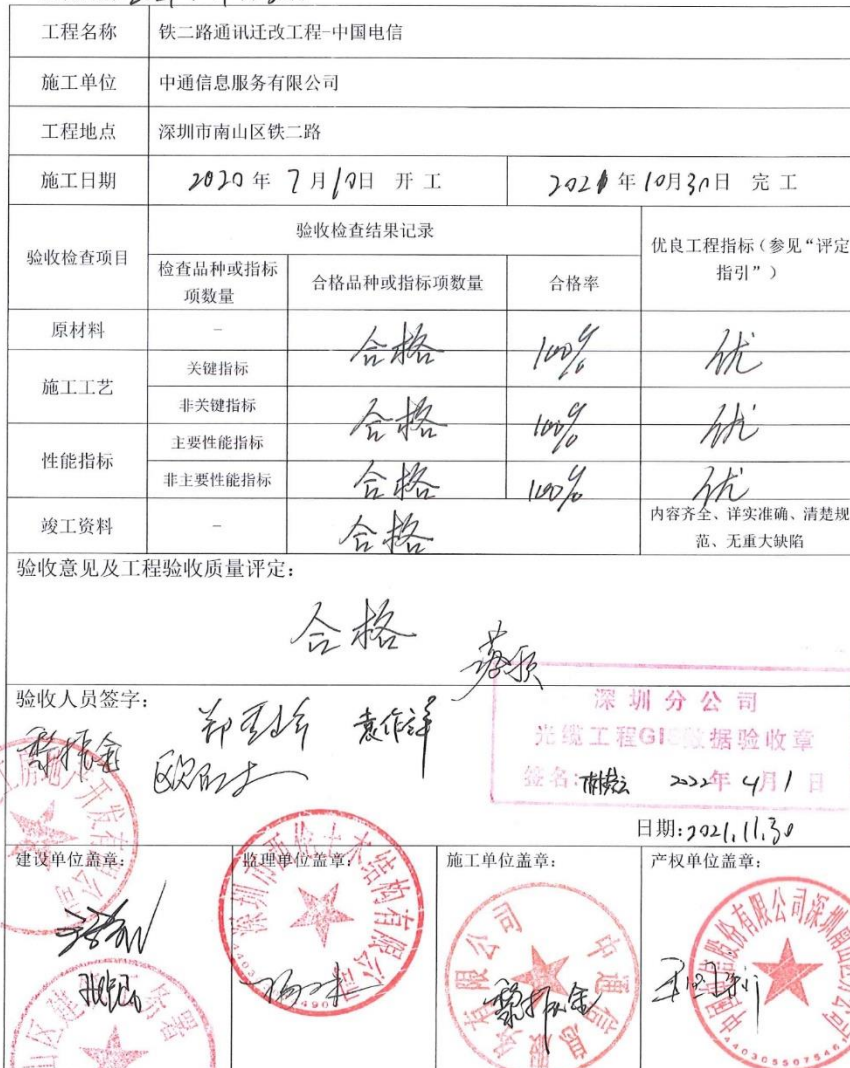 工程名称 铁二路通讯迁改工程-中国电信
施工单位 中通信息服务有限公司
工程地点 深圳市南山区铁二路
施工日期 2020年7月10日 开工 2021年10月30日 完工
验收检查项目 验收检查结果记录 优良工程指标（参见“评定指引”）
检查品种或指标项数量 合格品种或指标项数量 合格率
原材料 - 合格 100% 优
施工工艺 关键指标
非关键指标 合格 100% 优
性能指标 主要性能指标
非主要性能指标 合格 100% 优
竣工资料 - 合格 内容齐全、详实准确、清楚规范、无重大缺陷
验收意见及工程验收质量评定：
合格
验收人员签字：
袁作祥
黎振金
深圳分公司
光缆工程GIS数据验收章
签名： 2022年4月1日
日期：2021.11.30
建设单位盖章： 监理单位盖章： 施工单位盖章： 产权单位盖章：
深圳市西伦土木结构有限公司
中通信息服务有限公司
黎振金